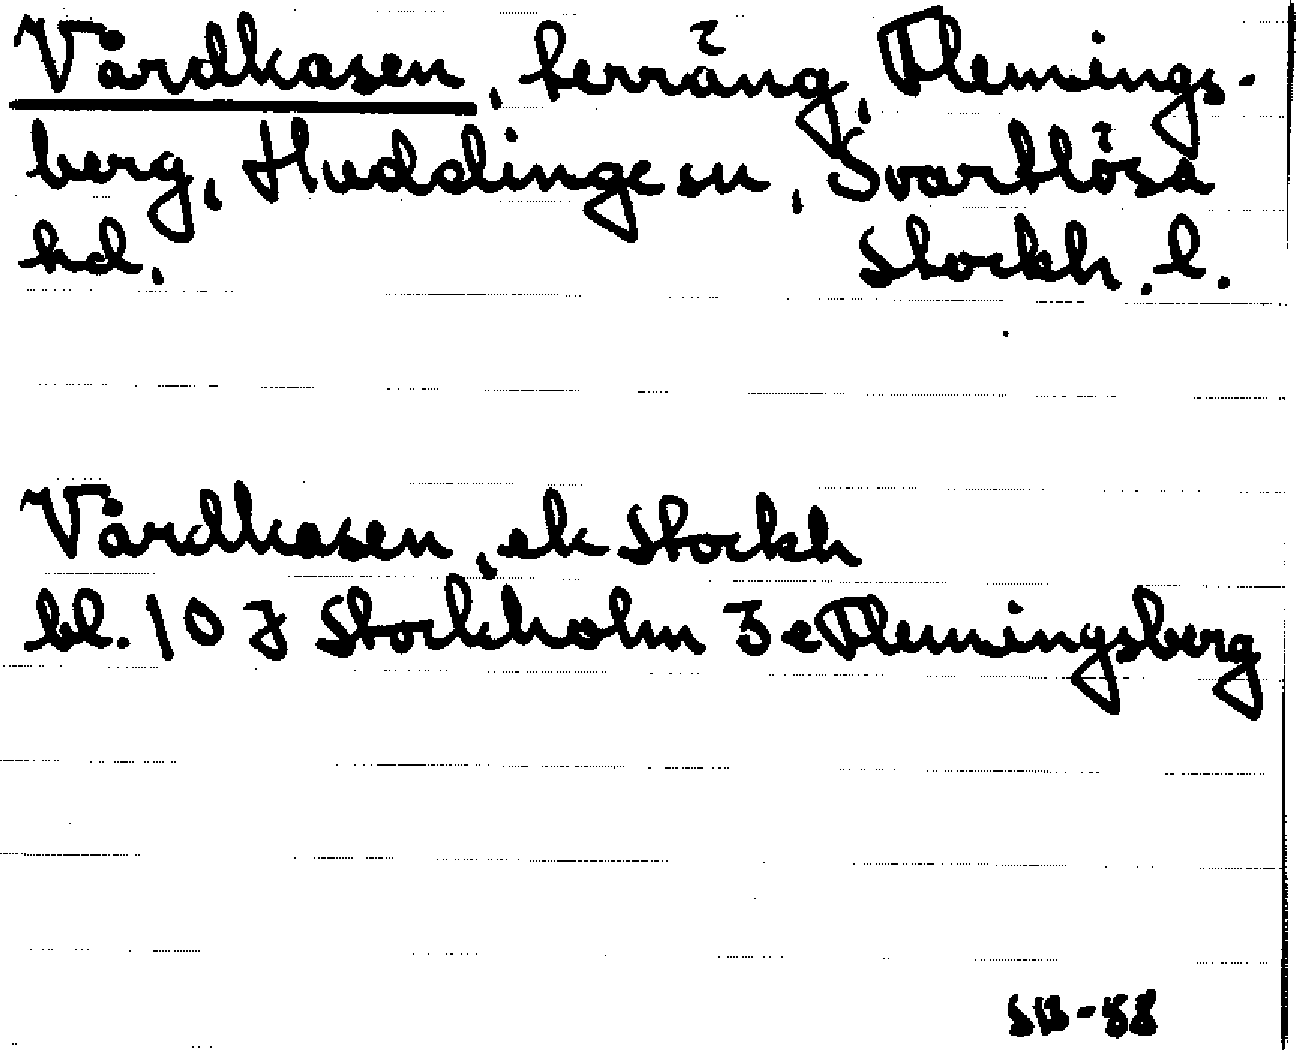 Vårdkasen, terräng, Flemings-
berg, Huddinge sn, Svartlösa
hd. Stockh. l.
Vårdkasen, ek Stockh
bl. 10 J Stockholm 3e Flemingsberg
SB-58